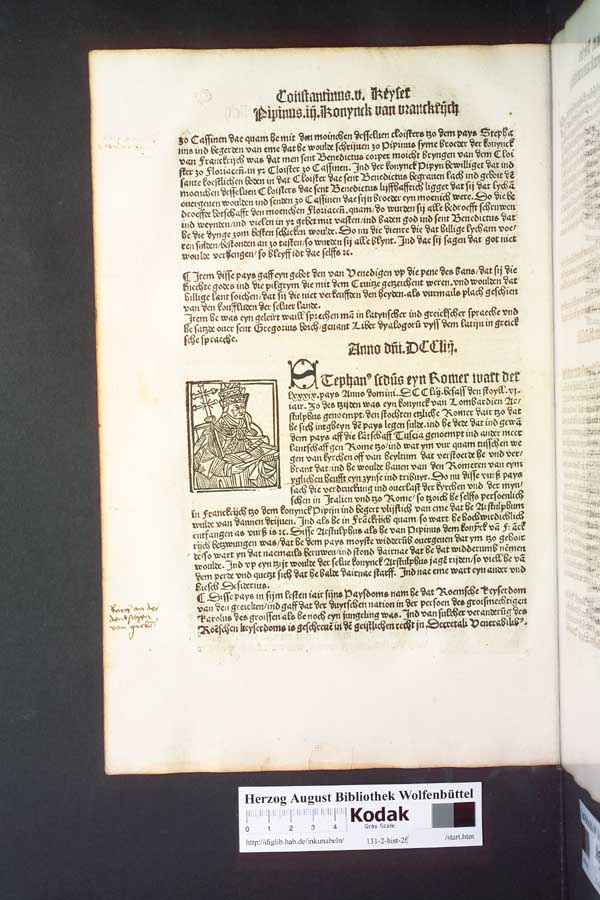 Constantinus.v. Keyser
Pipinus.iij.Konynck van vranckrijch
zo Cassinen dae quam he mit den moinchen desseluen cloisters tzo dem pays Stepha
nus ind begerden van eme dat he woulde schrijuen zo Pipinus syme broeder der konynck
van Franckrijch was dat men sent Benedictus corper moicht bryngen van dem Cloi
ster zo Floriacen. in yr Cloister zo Cassinen. Ind der konynck Pipyn bewilliget dat ind
sante koestlichen boden in dat Cloister dae sent Benedictus begrauen lach ind geboit de
moenchen desseluen Cloisters dae sent Benedictus lijffhafftich ligget dat sij dat lycha
ouergeuen woulden ind senden zo Cassinen dae sijn broeder eyn moenich were. Do die be
droeffte botschafft den moenchen Floriacen. quam/do wurden sij alle bedroefft schruwen
ind weynden/ind vielen in yr gebet mit vasten/ind baden god ind sent Benedictus dat
he die dynge zom besten schicken woulde. Do nu die dienre die dat billige lycham voe
ren sulden/bestonden an zo tasten/so wurden sij alle blynt. Ind dae sij sagen dat got niet
woulde verhengen/so bleyff idt dae selffs rc.
¶ Item disse pays gaff eyn gebot den van Venedigen vp die pene des bans/dat sij die
knechte godes ind die pilgrym die mit dem Cruitze getzeichent weren. vnd woulden dat
hillige lant soichen/dat sij die niet verkeufften den heyden. als vurmails plach geschien
van den kouffluden der seluer lande.
Item he was eyn geleirt waill sprechen man in latynscher ind greickscher spraeche vnd
he satzde ouer sent Gregorius boich/genant Liber dyalogorum vyss dem latijn in greick
sche sprache.
Anno dni. DCCliij.
STephanus secundus eyn Romer wart der
lxxxix.pays Anno domini. DCCliij.besass den stoyll.vi.
iair. Zo des tzijden was eyn konynck van Lombardien Ar
stulphus genoempt/den stochten etzliche Romer dair tzo dat
he sich intgheyn den pays legen sulde.ind he dede dat ind gewan
dem pays aff die lantschaff Tuscia genoempt ind ander meer
lantschaff gen Rome tzo/ind wat ym vur quam tusschen we
gen van kyrchen off van heyltum dat verstoerde he vnd ver/
brant dat/ind he woulde hauen van den Romeren van eym
yglichen heufft eyn zynse ind tribuyt. Do nu disse vurss pays
sach die verdruckung ind ouerlast der kyrchen vnd der myn/
schen in Italien vnd tzo Rome/so tzoich he selffs persoenlich
in Franckrijch tzo dem konynck Pipijn ind begert vlijslich van eme dat he Arstulphum
wulde van dannen drijuen. Ind als he in Franckrijch quam/so wart he hochwirdichlich
entfangen as vurss is rc. Disse Arstulphus als he van Pipinus dem konynck van Franck
rijch betzwungen was/dat he dem pays moyste widderumb ouergeuen dat ym tzo gehoir
de/so wart yn dat naemails beruwen/ind stond dairnae dat he dat widderumb nemen
woulde. Ind vp eyn tzijt woulde der selue konynck Arstulphus jage rijden/so viell he van
dem perde vnd quetzt sich dat he balde dairnae starff. Ind nae eme wart eyn ander vnd
hiesch Desiderius.
¶ Disse pays in sijm lesten iair sijns Paysdoms nam he dat Roemsche keyserdom
van den greicken/ind gaff dat der duytschen nation in der persoen des groismechtigen
Karolus des groissen als he noch eyn jungeling was. Ind van sulcher veranderung des
Roemschen keyserdoms is geschreuen in dem geistlichen recht in Decretali Venerabilem.
Herzog August Bibliothek Wolfenbüttel
0 1 2 3 4 Kodak
Gray Scale
http://diglib.hab.de/inkunabeln/ 131-2-hist-2f /start.htm